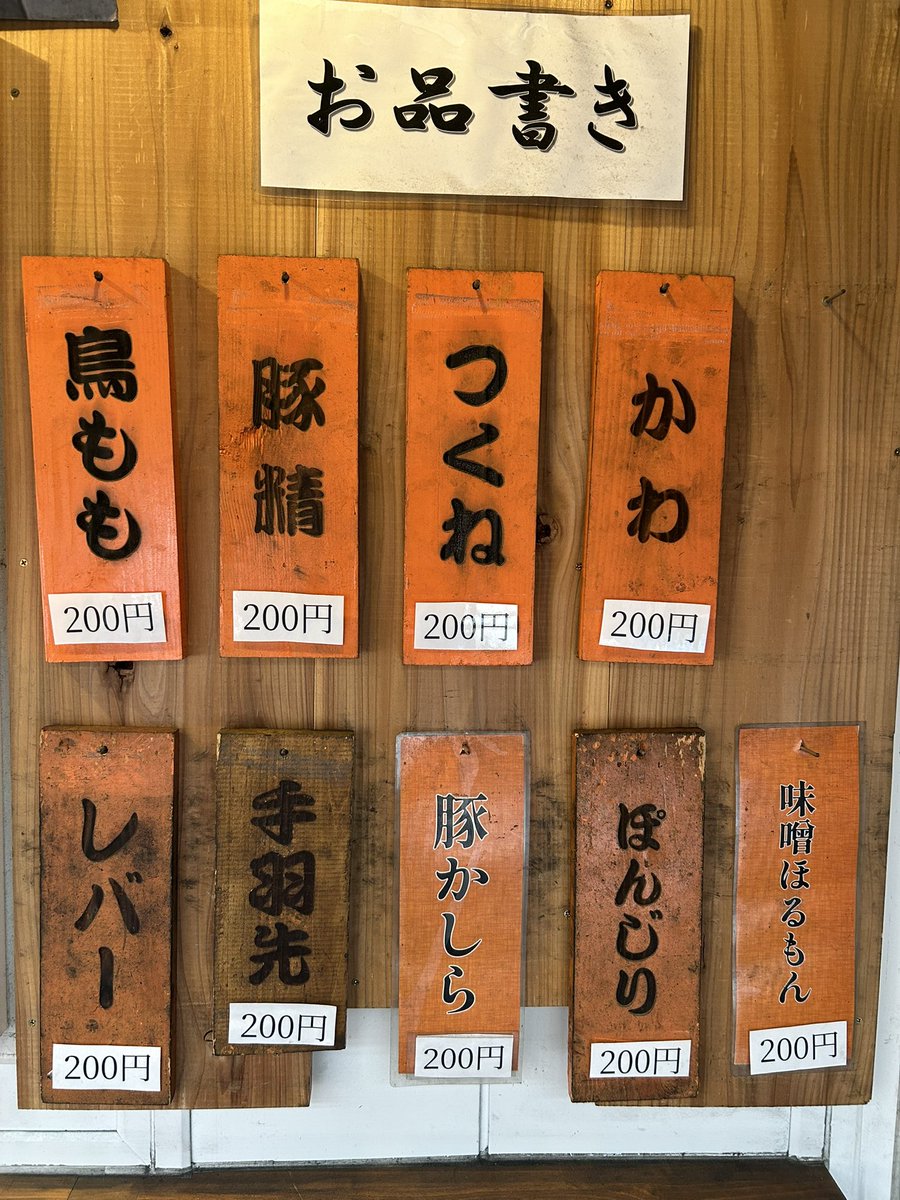 お品書き
鳥もも
200円
豚精
200円
つくね
200円
かわ
200円
レバー
200円
手羽先
200円
豚かしら
200円
ぽんじり
200円
味噌ほるもん
200円